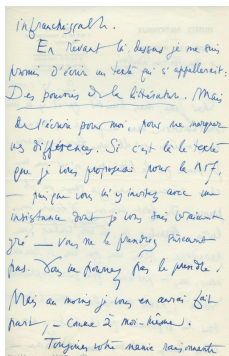 infranchissable.
En rêvant là-dessus je me suis
promis d'écrire un texte qui s'appellerait :
Des pouvoirs de la littérature. Mais
de l'écrire pour moi, pour me marquer
vos différences. Si c'est là le texte
que je vous proposais pour la NRF,
— puisque vous m'y invitez avec une
insistance dont je vous sais vraiment
gré — vous ne le prendrez sûrement
pas. Vous ne pourrez pas le prendre.
Mais au moins je vous en aurai fait
part, — comme à moi-même.
Toujours votre manie raisonnante